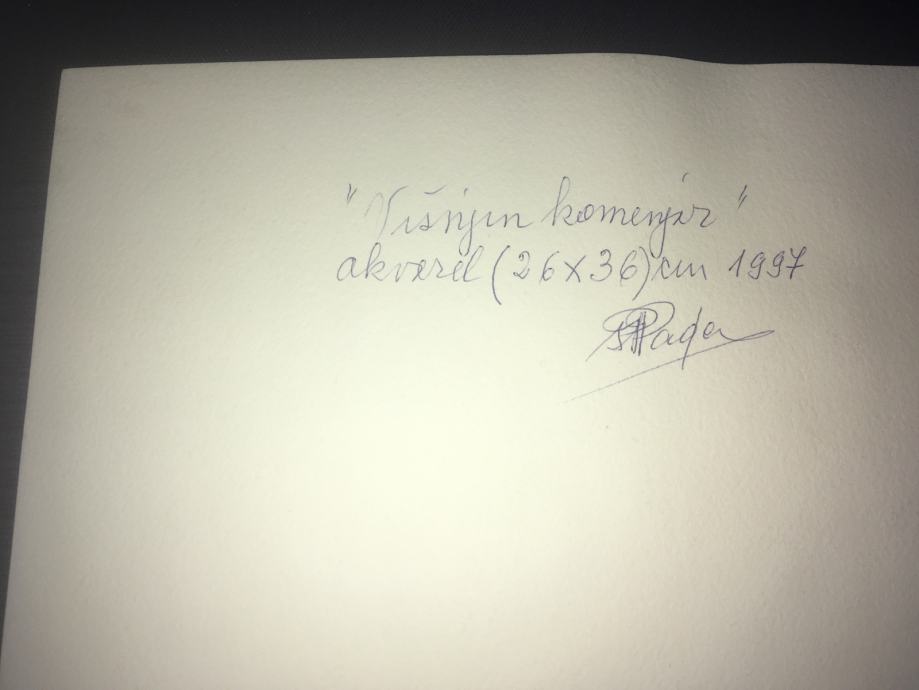 "Višnjin komenjar"
akvarel (26x36) cm 1997